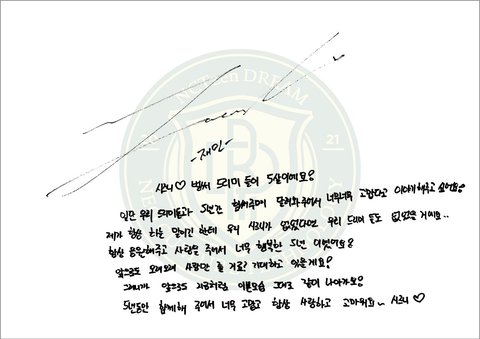 NCTzen DREAM
21
-재민-
시즈니♡ 벌써 드리미 들이 5살이에요?
일단 우리 드리미들과 5년간 함께해주며 달려와주어서 너무너무 고맙다고 이야기해주고 싶어요?
제가 항상 하는 말이긴 한데 우리 시즈니가 없었다면 우리 드리미 들도 없었을 거예요..
항상 응원해주고 사랑을 주어서 너무 행복한 5년 이었어요?
앞으로도 오래오래 사랑만 줄 거죠? 기대하고 있을게요?
그러니까 앞으로도 지금처럼 이쁜모습 그대로 같이 나아가요?
5년동안 함께해 주어서 너무 고맙고 항상 사랑하고 고마워요~ 시즈니 ♡